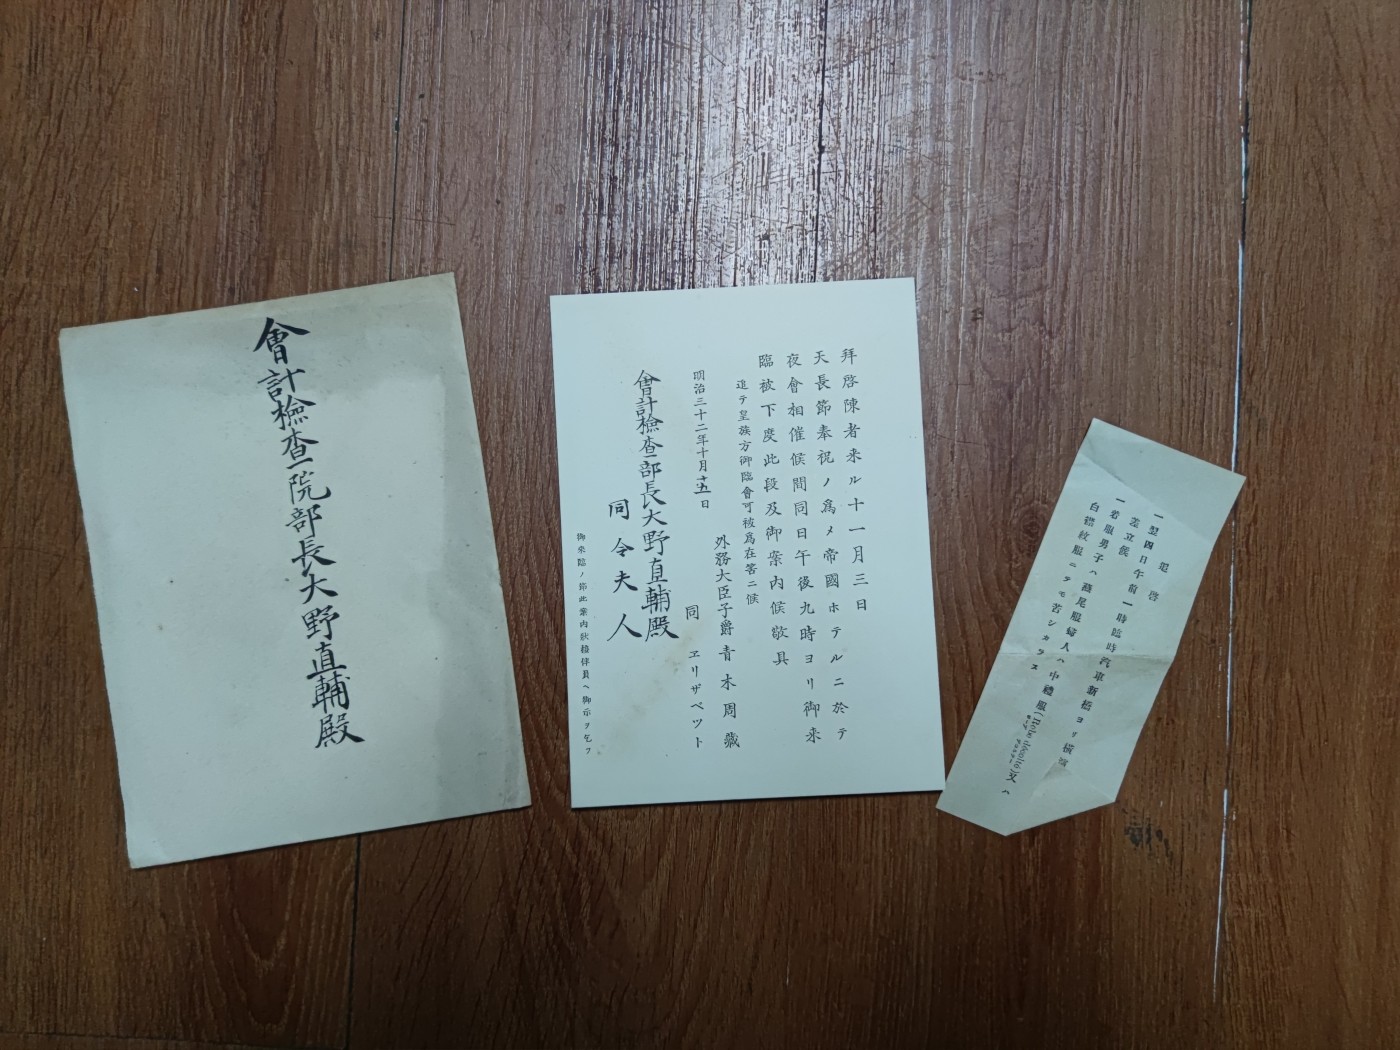 會計檢査院部長大野直輔殿
拜啓陳者来ル十一月三日
天長節奉祝ノ爲メ帝國ホテルニ於テ
夜會相催候間同日午後九時ヨリ御来
臨被下度此段及御案内候敬具
追テ皇族方御臨會可被爲在筈ニ候
明治三十二年十月十五日
外務大臣子爵青木周藏
同 ヱリザベツト
會計檢査部長大野直輔殿
同令夫人
御来臨ノ節此案内狀接伴員ヘ御示ヲ乞フ
追啓
一翌四日午前一時臨時汽車新橋ヨリ横濱
差立候
一着服男子ハ燕尾服婦人ハ中禮服(Robe décolleté)又ハ
白襟紋服ニテモ苦シカラス